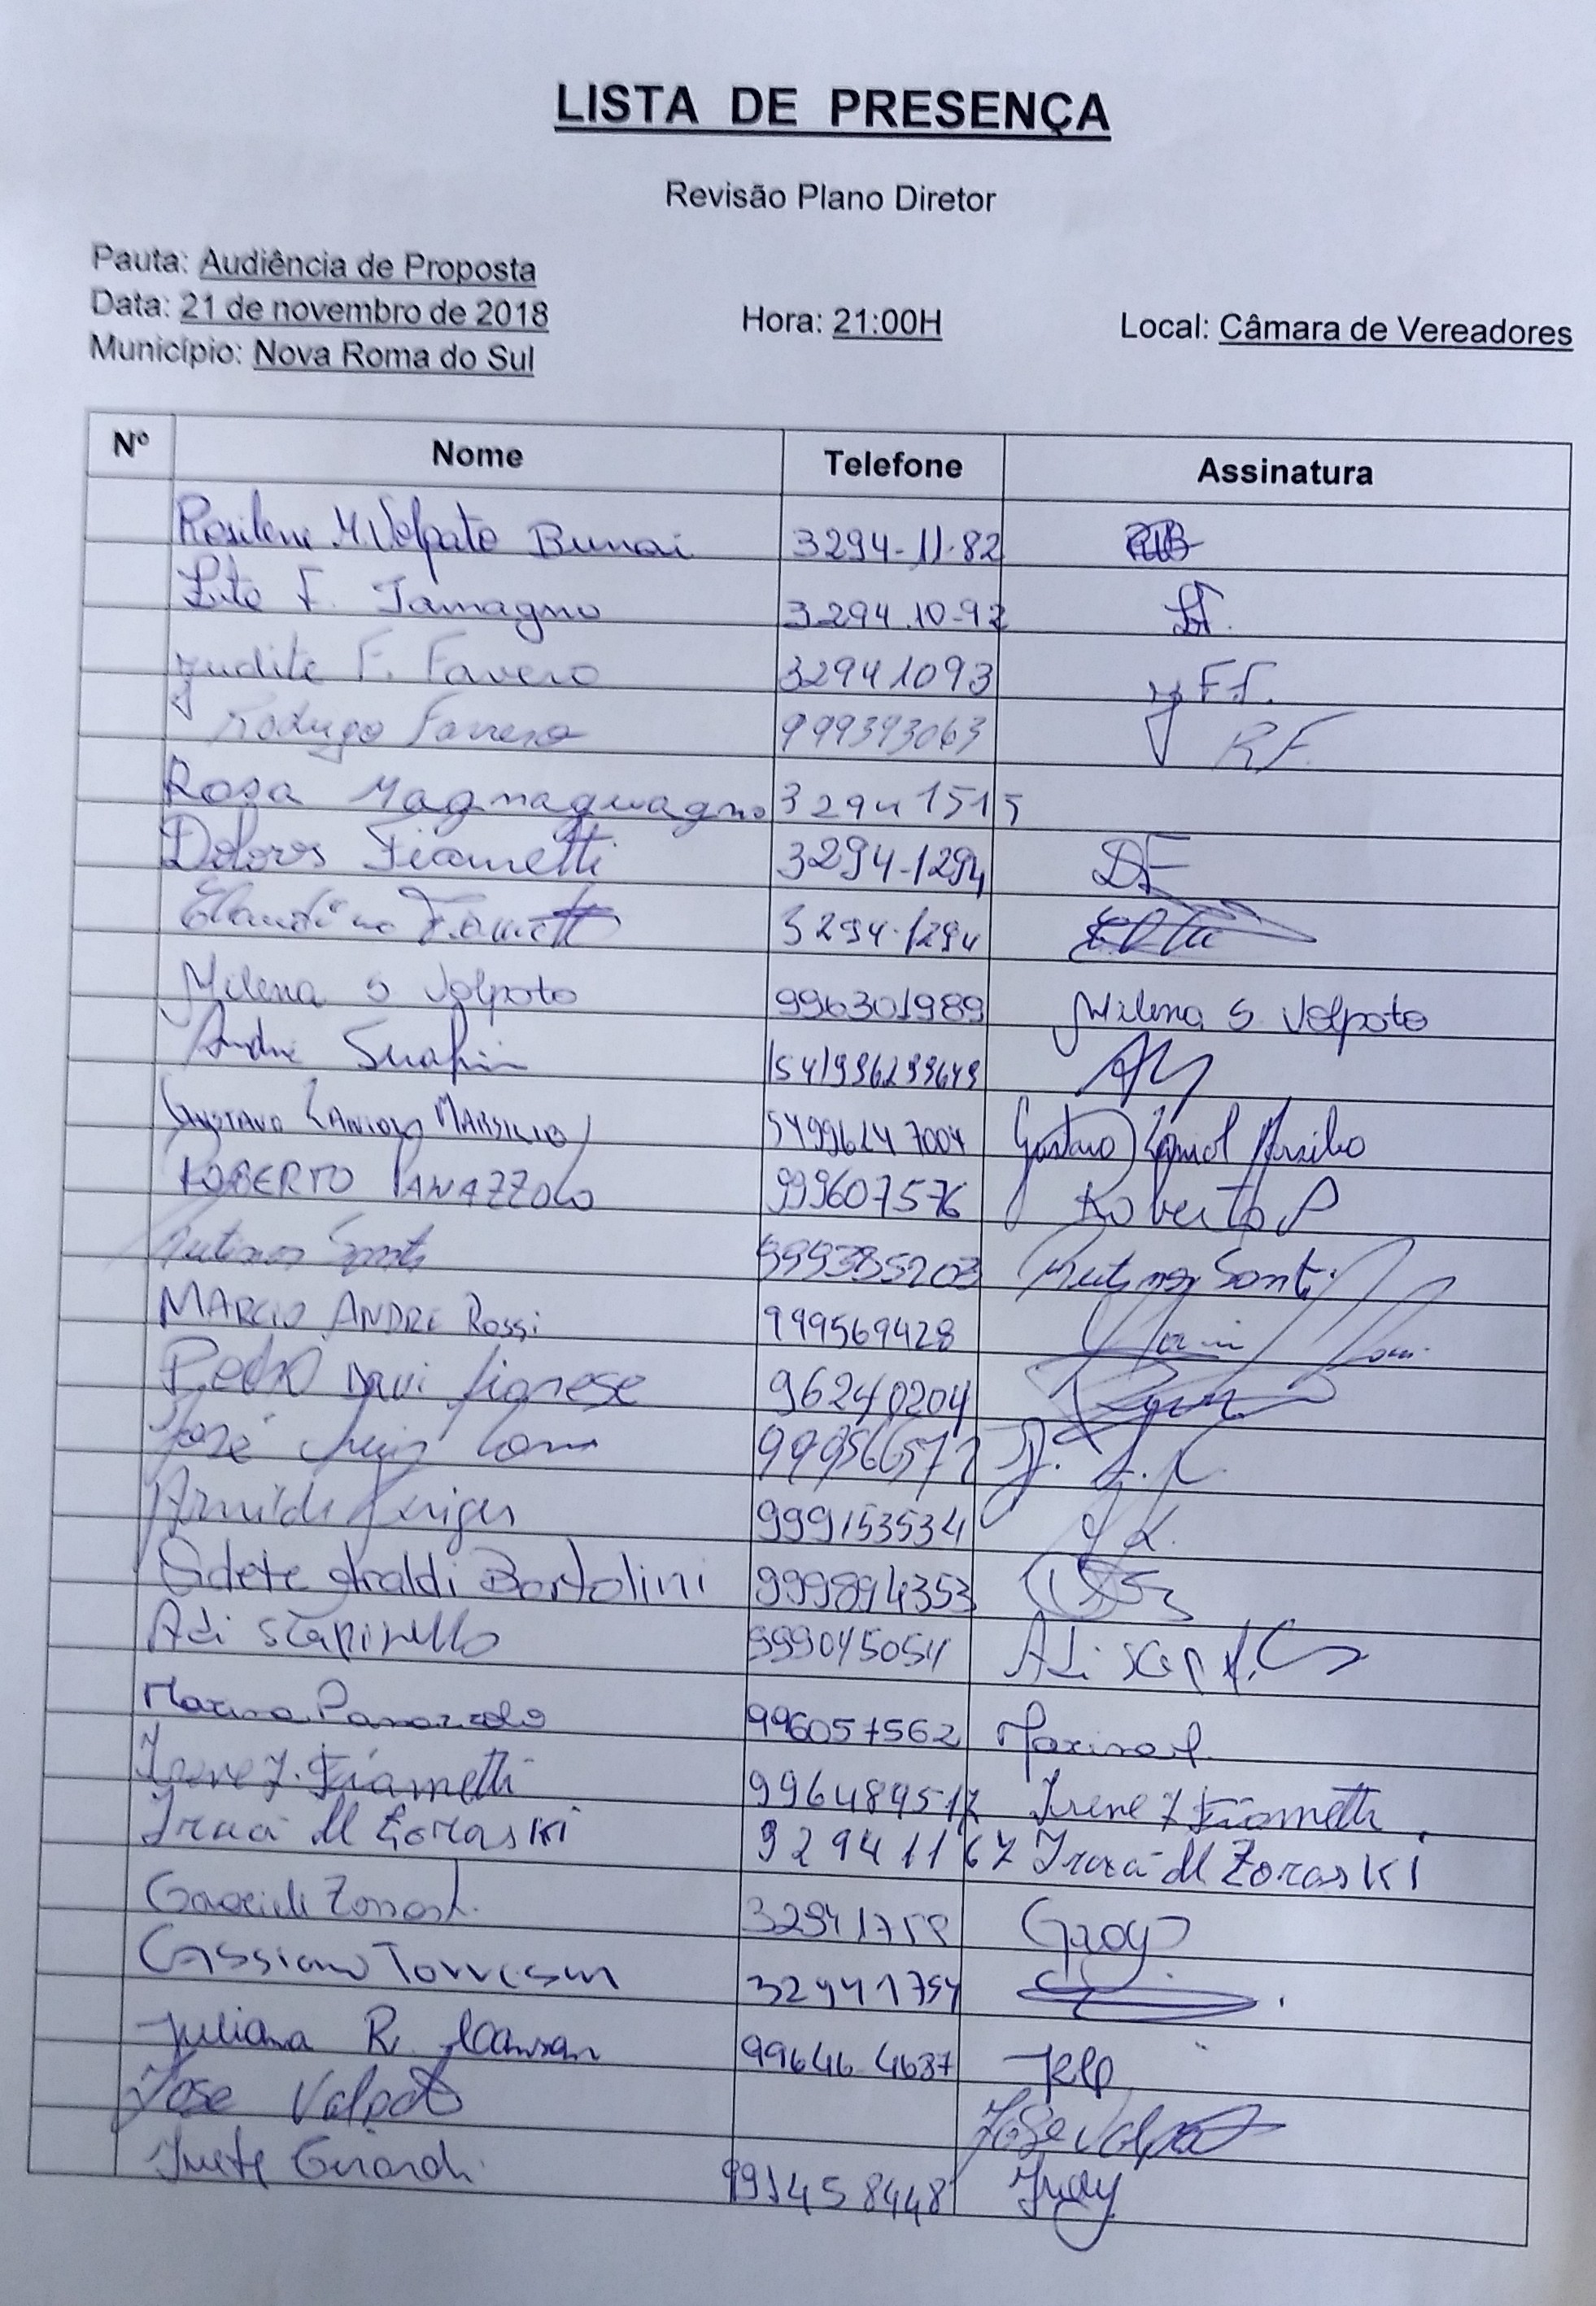 LISTA DE PRESENÇA
Revisão Plano Diretor
Pauta: Audiência de Proposta
Data: 21 de novembro de 2018 Hora: 21:00H Local: Câmara de Vereadores
Município: Nova Roma do Sul
Nº Nome Telefone Assinatura
Rosilene M. Volpato Bunai 3294-11-82 RVB
F. Tamagno 3294.10-92
Judite F. Favero 32941093 J F F.
Rodrigo Favero 999393063 RF
Rosa Magnaguagno 32941515
Dolores Fiametti 3294-1294 DF
Claudino Fiametti 3294-1294
Milena S Volpato 996301989 Milena S Volpato
André Serafin
Gustavo Zaniol Marsilio 54996247004 Gustavo Zaniol Marsilio
ROBERTO PANAZZOLO 999607576 Roberto P
999385203
MARCIO ANDRE Rossi 999569428
Pedro Davi 96240204
José Luiz 999566571
999153534
Odete Araldi Bortolini 999894353
Adi Scapinello 999045054 Adi
Marina Panazzolo 996057562 Marina P.
Irene Z. Fiametti Irene Z Fiametti
Iracá M Zoraski 32941167 Iracá M Zoraski
32941759
Cassiano Torresan 32941754
Juliana R. 99646 4637
Jose Volpato Jose Volpato
Ivete Girardi 991458448